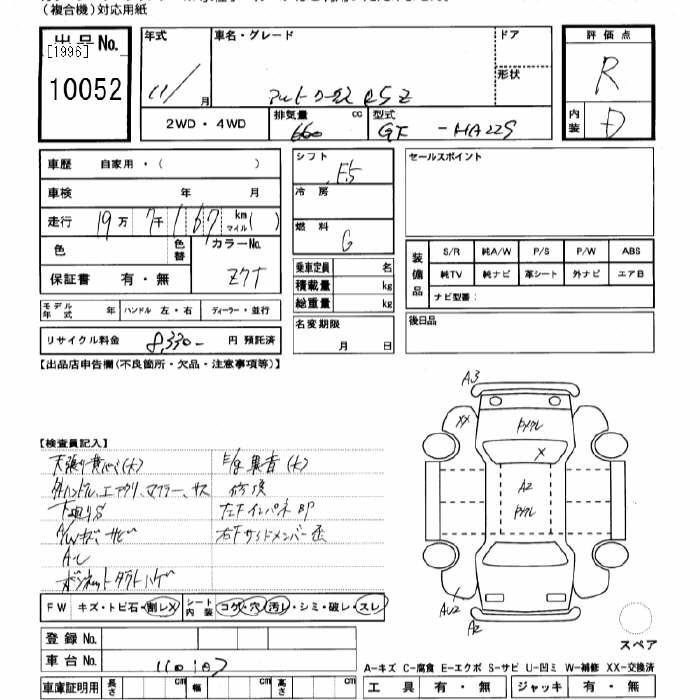 (複合機)対応用紙
出品No.
[1996]
10052
年式
11/
月
車名・グレード
アルトワークス RSZ
ドア
形状
2WD・4WD
排気量
660
cc
型式
GF -HA22S
評価点
R
内装
D
車歴 自家用・( )
車検 年 月
走行 19万 7千 167 km マイル( )
色
色替
カラーNo.
Z7T
保証書 有・無
モデル年式 年 ハンドル 左・右 ディーラー・並行
リサイクル料金 8,330- 円 預託済
シフト
F5
冷房
燃料
G
乗車定員 名
積載量 kg
総重量 kg
名変期限
月 日
セールスポイント
装備品
S/R 純A/W P/S P/W ABS
純TV 純ナビ 革シート 外ナビ エアB
ナビ型番:
後日品
【出品店申告欄(不良箇所・欠品・注意事項等)】
【検査員記入】
外ハンドル、エアクリ、マフラー、サス
下廻りS
A/Wキズ サビ
ボンネット
左F インパネ
右F サイドメンバー 歪
FW キズ・トビ石・割レX
シート内装 コゲ・穴・汚レ・シミ・破レ・スレ
登録No.
車台No.
車庫証明用 長さ cm 幅 cm 高さ cm
A3
XX
X
A2
AU2
A2
スペア
A-キズ C-腐食 E-エクボ S-サビ U-凹ミ W-補修 XX-交換済
工具 有・無 ジャッキ 有・無